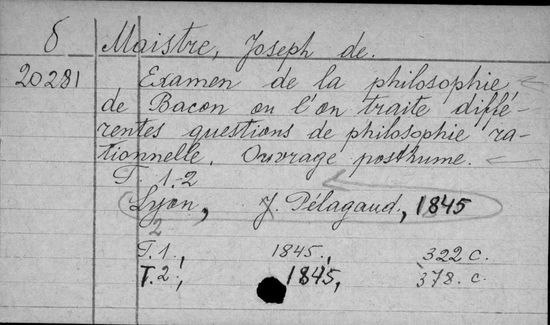 б Maistre, Joseph de.
20281 Examen de la philosophie
de Bacon ou l'on traite diffé-
rentes questions de philosophie ra-
tionnelle. Ouvrage posthume.
T 1.-2
Lyon, J. Pélagaud, 1845
2
T. 1., 1845, 322 c.
T. 2., 1845, 378. c.